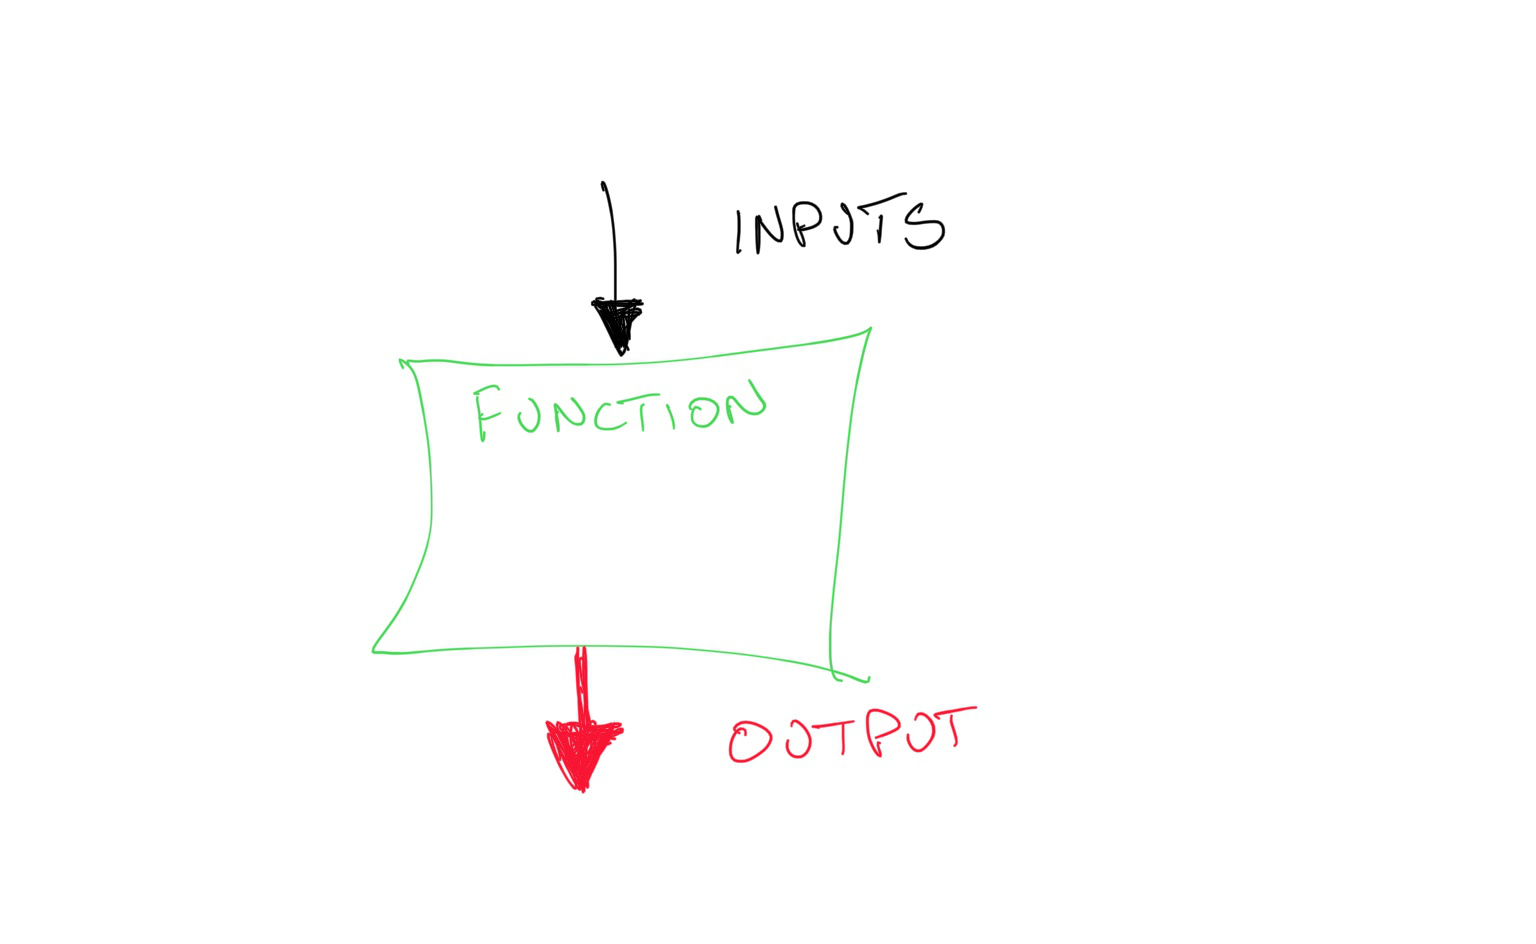 INPUTS
FUNCTION
OUTPUT